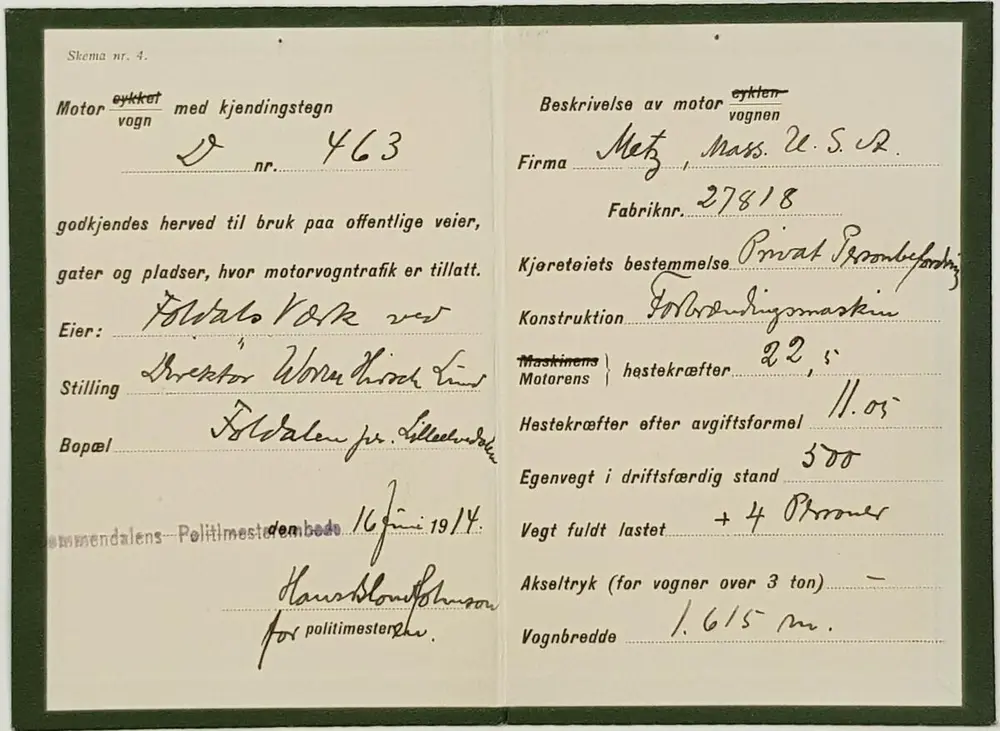 Skema nr. 4.
Motor cykkel vogn med kjendingstegn
D nr. 463
godkjendes herved til bruk paa offentlige veier,
gater og pladser, hvor motorvogntrafik er tillatt.
Eier: Foldals Værk ved
Stilling Direktör Worm Hirsch Lund
Bopæl Foldalen pr. Lilleelvedalen
emmendalens Politimesterembede den 16 Juni 1914.
Hans Blom
for politimesteren.
Beskrivelse av motor cyklen vognen
Firma Metz, Mass. U. S. A.
Fabriknr. 27818
Kjøretøiets bestemmelse Privat Personbefordring
Konstruktion Forbrændingsmaskin
Maskinens Motorens } hestekræfter 22,5
Hestekræfter efter avgiftsformel 11.05
Egenvegt i driftsfærdig stand 500
Vegt fuldt lastet + 4 Personer
Akseltryk (for vogner over 3 ton) —
Vognbredde 1.615 m.